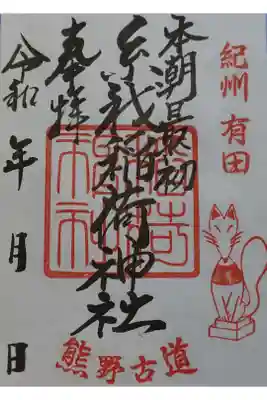 紀州 有田
本朝最初
糸我稲荷神社
奉拝
令和 年 月 日
熊野古道